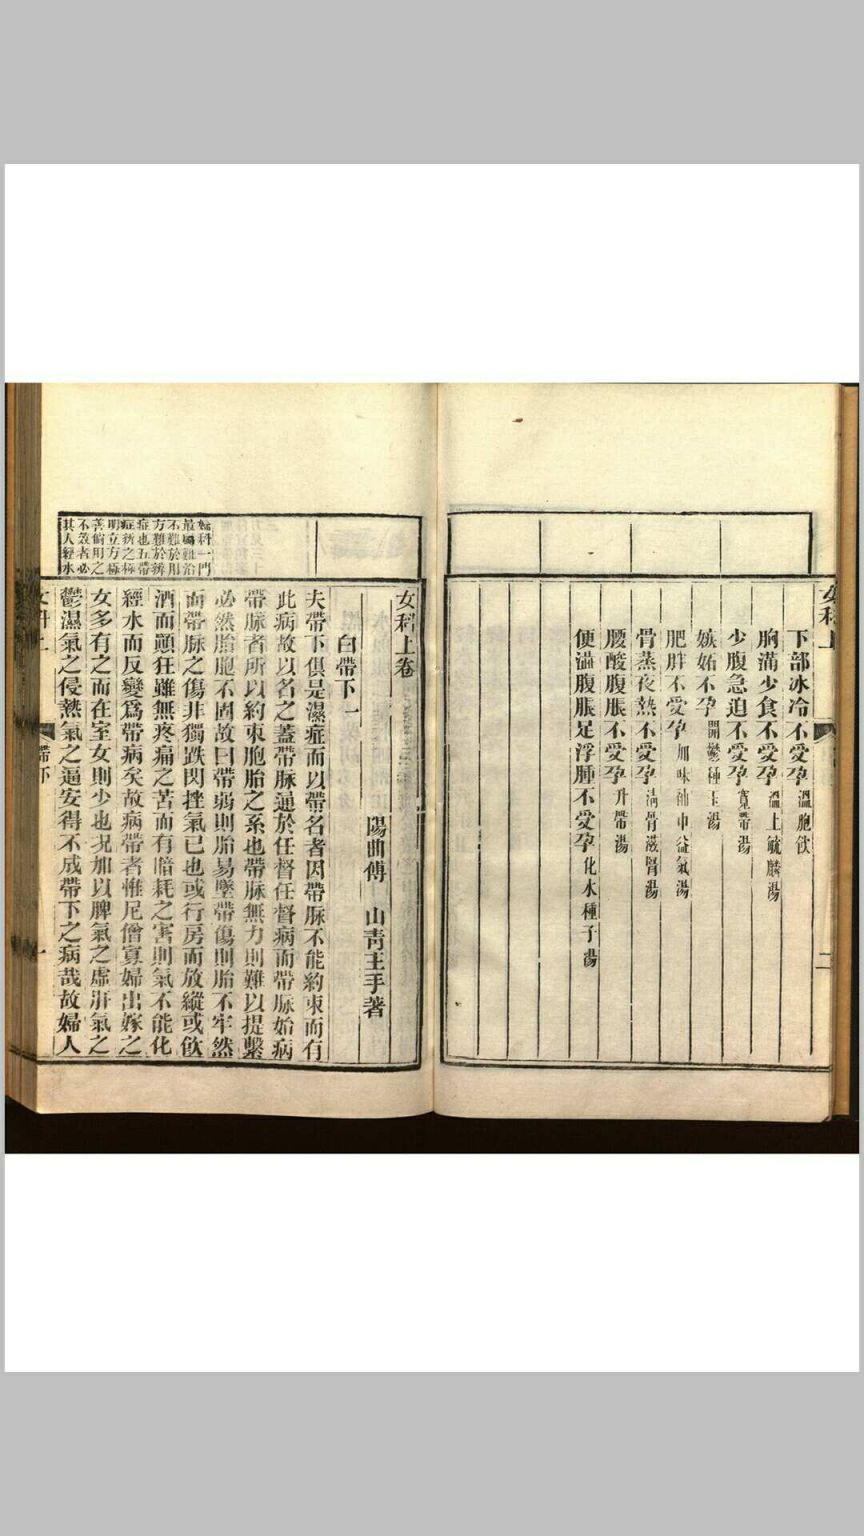 女科上
二
下部冰冷不受孕 溫胞飲
胸滿少食不受孕 溫土毓麟湯
少腹急迫不受孕 寬帶湯
嫉妬不孕 開鬱種玉湯
肥胖不受孕 加味補中益氣湯
骨蒸夜熱不受孕 清骨滋腎湯
腰酸腹脹不受孕 升帶湯
便澁腹脹足浮腫不受孕 化水種子湯
女科上卷
陽曲傅 山青主手著
白帶下一
夫帶下俱是濕症而以帶名者因帶脉不能約束而有
此病故以名之蓋帶脉通於任督任督病而帶脉始病
帶脉者所以約束胞胎之系也帶脉無力則難以提繫
必然胎胞不固故曰帶弱則胎易墜帶傷則胎不牢然
而帶脉之傷非獨跌閃挫氣已也或行房而放縱或飲
酒而顚狂雖無疼痛之苦而有暗耗之害則氣不能化
經水而反變爲帶病矣故病帶者惟尼僧寡婦出嫁之
女多有之而在室女則少也况加以脾氣之虛肝氣之
鬱濕氣之侵熱氣之逼安得不成帶下之病哉故婦人
婦科一門
最難治
不難於用
方難於辨
症也五帶
症辨之極
明立方極
善倘用之
不效者必
其人經水
女科上
帶下
一